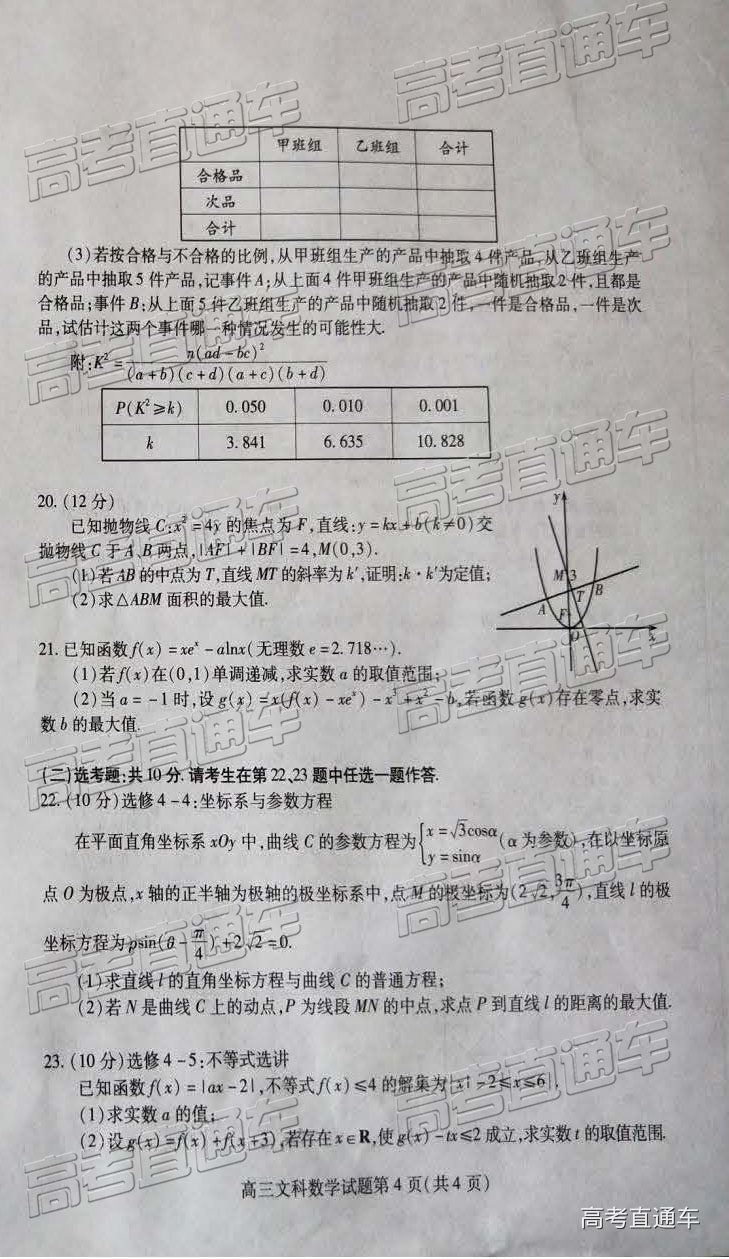 甲班组 乙班组 合计
合格品
次品
合计
(3)若按合格与不合格的比例,从甲班组生产的产品中抽取4件产品,从乙班组生产
的产品中抽取5件产品,记事件A:从上面4件甲班组生产的产品中随机抽取2件,且都是
合格品;事件B:从上面5件乙班组生产的产品中随机抽取2件,一件是合格品,一件是次
品,试估计这两个事件哪一种情况发生的可能性大.
附:K²=n(ad-bc)²/(a+b)(c+d)(a+c)(b+d)
P(K²≥k) 0.050 0.010 0.001
k 3.841 6.635 10.828
20.(12分)
已知抛物线C:x²=4y的焦点为F,直线:y=kx+b(k≠0)交
抛物线C于A、B两点,|AF|+|BF|=4,M(0,3).
(1)若AB的中点为T,直线MT的斜率为k′,证明:k·k′为定值;
(2)求△ABM面积的最大值.
y
M 3
T B
A
F
O x
21.已知函数f(x)=xeˣ-alnx(无理数e=2.718…).
(1)若f(x)在(0,1)单调递减,求实数a的取值范围;
(2)当a=-1时,设g(x)=x(f(x)-xeˣ)-x³+x²-b,若函数g(x)存在零点,求实
数b的最大值.
(二)选考题:共10分.请考生在第22、23题中任选一题作答.
22.(10分)选修4-4:坐标系与参数方程
在平面直角坐标系xOy中,曲线C的参数方程为{x=√3cosα y=sinα(α为参数),在以坐标原
点O为极点,x轴的正半轴为极轴的极坐标系中,点M的极坐标为(2√2,3π/4),直线l的极
坐标方程为ρsin(θ-π/4)+2√2=0.
(1)求直线l的直角坐标方程与曲线C的普通方程;
(2)若N是曲线C上的动点,P为线段MN的中点,求点P到直线l的距离的最大值.
23.(10分)选修4-5:不等式选讲
已知函数f(x)=|ax-2|,不等式f(x)≤4的解集为{x|-2≤x≤6}.
(1)求实数a的值;
(2)设g(x)=f(x)+f(x+3),若存在x∈R,使g(x)-tx≤2成立,求实数t的取值范围.
高三文科数学试题第4页(共4页)
高考直通车